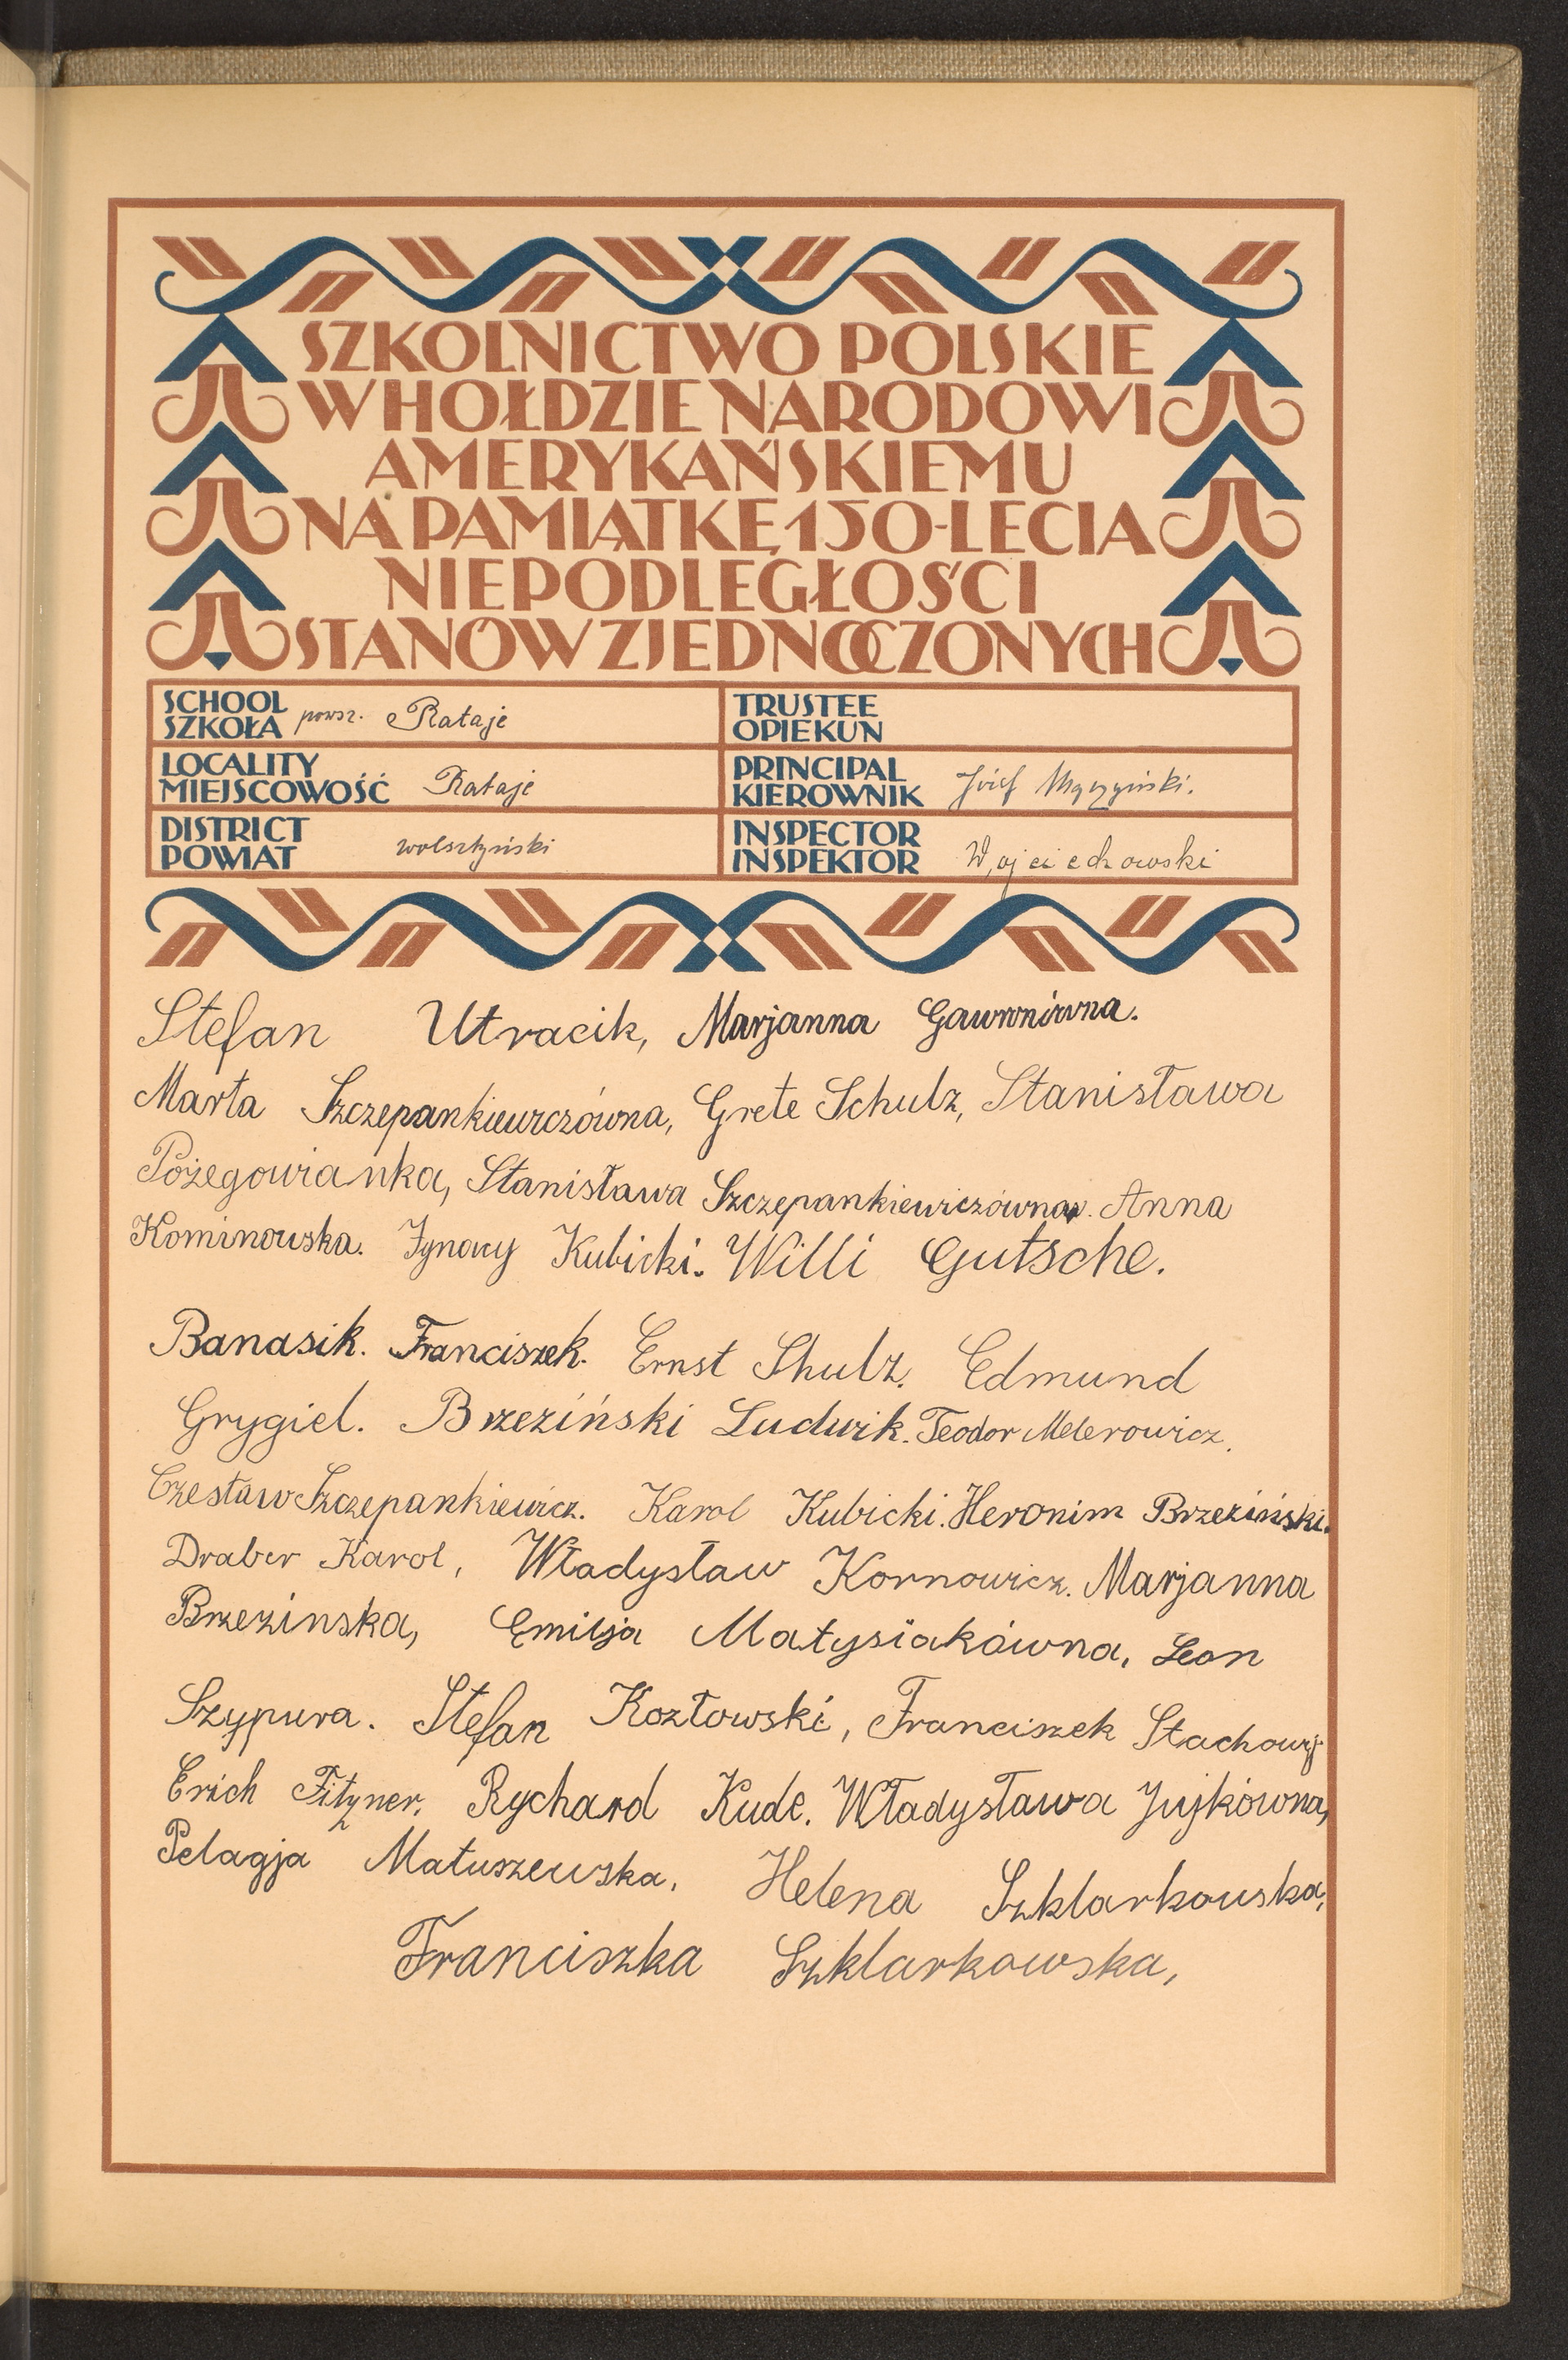 SZKOLNICTWO POLSKIE
W HOŁDZIE NARODOWI
AMERYKAŃSKIEMU
NA PAMIĄTKĘ 150-LECIA
NIEPODLEGŁOŚCI
STANÓW ZJEDNOCZONYCH
SCHOOL
SZKOŁA powsz. Rataje
TRUSTEE
OPIEKUN
LOCALITY
MIEJSCOWOŚĆ Rataje
PRINCIPAL
KIEROWNIK Józef
DISTRICT
POWIAT wolsztyński
INSPECTOR
INSPEKTOR Wojciechowski
Stefan Utracik, Marjanna
Marta Szczepankiewiczówna, Grete Schulz, Stanisława
Pożegowianka, Stanisława Szczepankiewiczówna. Anna
Kominowska. Ignacy Kubicki. Willi Gutsche.
Banasik. Franciszek. Ernst Shulz. Edmund
Grygiel. Brzeziński Ludwik. Teodor Melerowicz.
Czesław Szczepankiewicz. Karol Kubicki. Heronim Brzeziński.
Draber Karol, Władysław Kornowicz. Marjanna
Brzezinska, Emilja Matysiakówna, Leon
Szypura. Stefan Kozłowski, Franciszek
Erich Fitzner, Rychard Kude. Władysława Jujkówna,
Pelagja Matuszewska, Helena Szklarkowska,
Franciszka Szklarkowska,